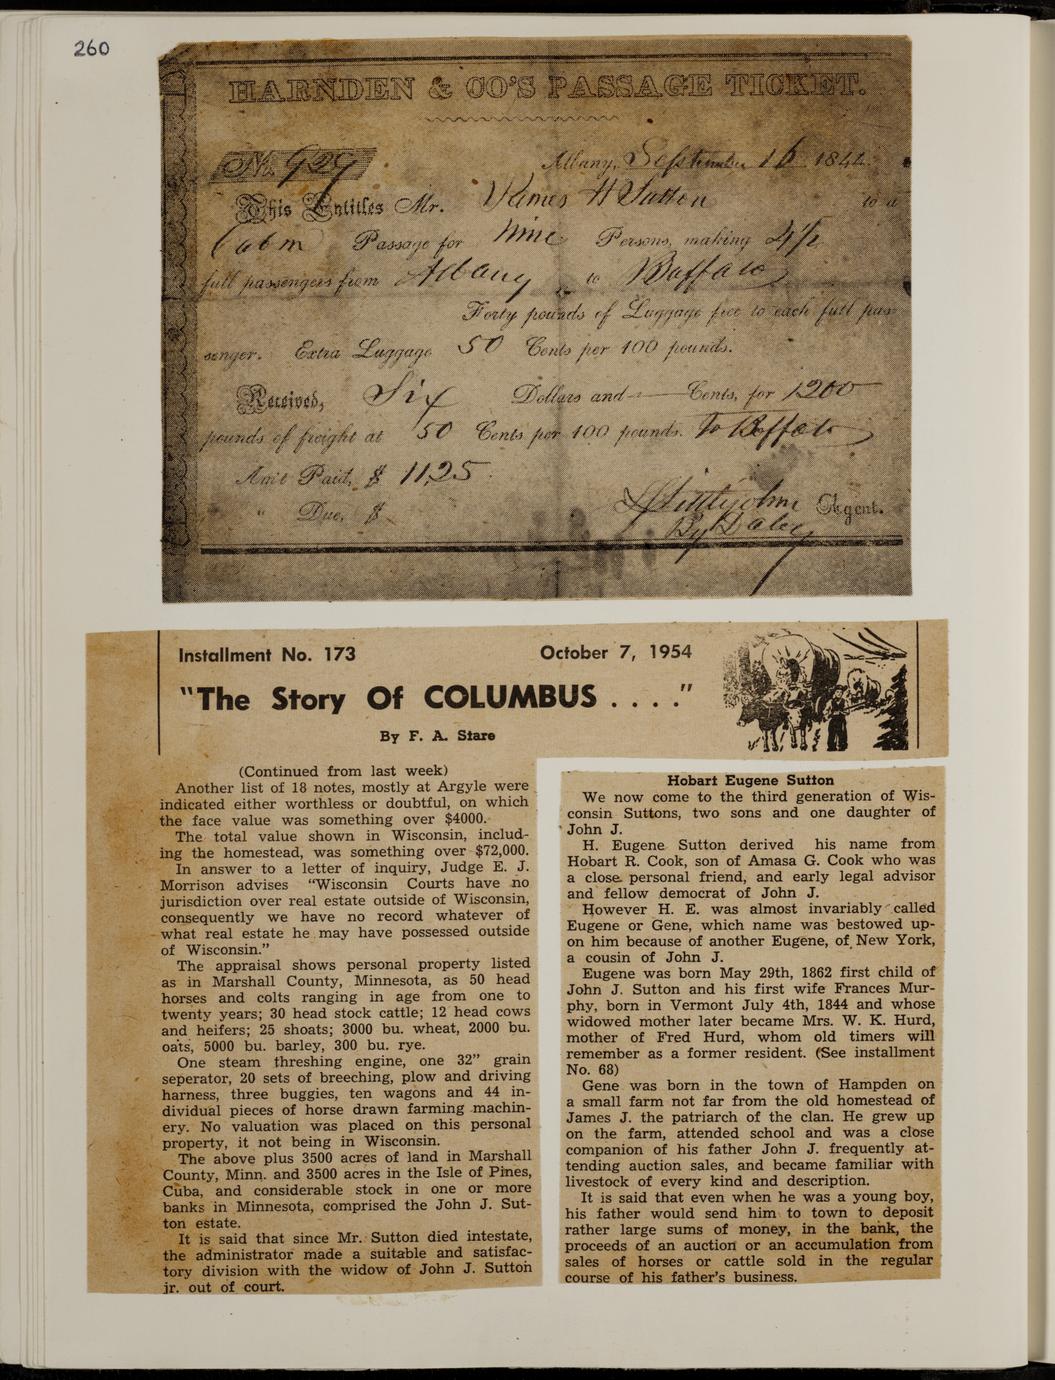 260
HARNDEN & CO'S PASSAGE TICKET.
No. 929
Albany, September 16 1844.
This Entitles Mr. James H Sutton to a
Cabin Passage for Nine Persons, making 4½
full passengers from Albany to Buffalo
Forty pounds of Luggage free to each full pas-
senger. Extra Luggage 50 Cents per 100 pounds.
Received, Six Dollars and — Cents, for 1200
pounds of freight at 50 Cents per 100 pounds. To Buffalo
Am't Paid, $ 11,25
" Due, $
Littlejohn Agent.
By Daley
Installment No. 173 October 7, 1954
"The Story Of COLUMBUS . . . ."
By F. A. Stare
(Continued from last week)
Another list of 18 notes, mostly at Argyle were
indicated either worthless or doubtful, on which
the face value was something over $4000.
The total value shown in Wisconsin, includ-
ing the homestead, was something over $72,000.
In answer to a letter of inquiry, Judge E. J.
Morrison advises "Wisconsin Courts have no
jurisdiction over real estate outside of Wisconsin,
consequently we have no record whatever of
what real estate he may have possessed outside
of Wisconsin."
The appraisal shows personal property listed
as in Marshall County, Minnesota, as 50 head
horses and colts ranging in age from one to
twenty years; 30 head stock cattle; 12 head cows
and heifers; 25 shoats; 3000 bu. wheat, 2000 bu.
oats, 5000 bu. barley, 300 bu. rye.
One steam threshing engine, one 32" grain
seperator, 20 sets of breeching, plow and driving
harness, three buggies, ten wagons and 44 in-
dividual pieces of horse drawn farming machin-
ery. No valuation was placed on this personal
property, it not being in Wisconsin.
The above plus 3500 acres of land in Marshall
County, Minn. and 3500 acres in the Isle of Pines,
Cuba, and considerable stock in one or more
banks in Minnesota, comprised the John J. Sut-
ton estate.
It is said that since Mr. Sutton died intestate,
the administrator made a suitable and satisfac-
tory division with the widow of John J. Sutton
jr. out of court.
Hobart Eugene Sutton
We now come to the third generation of Wis-
consin Suttons, two sons and one daughter of
John J.
H. Eugene Sutton derived his name from
Hobart R. Cook, son of Amasa G. Cook who was
a close personal friend, and early legal advisor
and fellow democrat of John J.
However H. E. was almost invariably called
Eugene or Gene, which name was bestowed up-
on him because of another Eugene, of New York,
a cousin of John J.
Eugene was born May 29th, 1862 first child of
John J. Sutton and his first wife Frances Mur-
phy, born in Vermont July 4th, 1844 and whose
widowed mother later became Mrs. W. K. Hurd,
mother of Fred Hurd, whom old timers will
remember as a former resident. (See installment
No. 68)
Gene was born in the town of Hampden on
a small farm not far from the old homestead of
James J. the patriarch of the clan. He grew up
on the farm, attended school and was a close
companion of his father John J. frequently at-
tending auction sales, and became familiar with
livestock of every kind and description.
It is said that even when he was a young boy,
his father would send him to town to deposit
rather large sums of money, in the bank, the
proceeds of an auction or an accumulation from
sales of horses or cattle sold in the regular
course of his father's business.